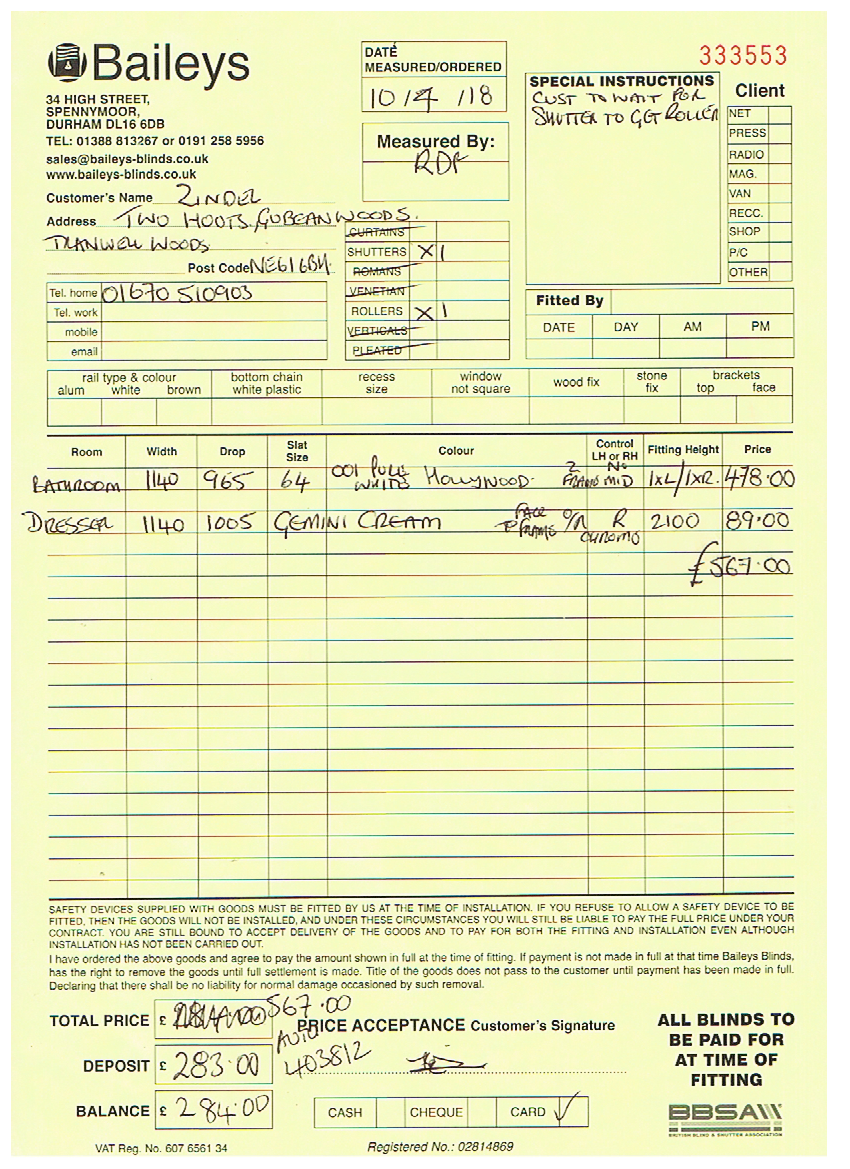 Baileys
34 HIGH STREET,
SPENNYMOOR,
DURHAM DL16 6DB
TEL: 01388 813267 or 0191 258 5956
sales@baileys-blinds.co.uk
www.baileys-blinds.co.uk
DATE
MEASURED/ORDERED
10/4/18
Measured By:
RDF
333553
SPECIAL INSTRUCTIONS
CUST TO WAIT FOR
SHUTTER TO GET ROLLER
Client
NET
PRESS
RADIO
MAG.
VAN
RECC.
SHOP
P/C
OTHER
Customer's Name ZINDEL
Address TWO HOOTS, GUBEAN WOODS.
TRANWELL WOODS
Post Code NE61 6BH.
Tel. home 01670 510903
Tel. work
mobile
email
CURTAINS
SHUTTERS X 1
ROMANS
VENETIAN
ROLLERS X 1
VERTICALS
PLEATED
Fitted By
DATE DAY AM PM
rail type & colour bottom chain recess window wood fix stone brackets
alum white brown white plastic size not square fix top face
Room Width Drop Slat Size Colour Control LH or RH Fitting Height Price
BATHROOM 1140 965 64 001 PURE WHITE HOLLYWOOD. Z FRAME NO MID 1XL/1XR. 478.00
DRESSER 1140 1005 GEMINI CREAM FACE TO FRAME O/R R CHROME 2100 89.00
£567.00
SAFETY DEVICES SUPPLIED WITH GOODS MUST BE FITTED BY US AT THE TIME OF INSTALLATION. IF YOU REFUSE TO ALLOW A SAFETY DEVICE TO BE
FITTED, THEN THE GOODS WILL NOT BE INSTALLED, AND UNDER THESE CIRCUMSTANCES YOU WILL STILL BE LIABLE TO PAY THE FULL PRICE UNDER YOUR
CONTRACT. YOU ARE STILL BOUND TO ACCEPT DELIVERY OF THE GOODS AND TO PAY FOR BOTH THE FITTING AND INSTALLATION EVEN ALTHOUGH
INSTALLATION HAS NOT BEEN CARRIED OUT.
I have ordered the above goods and agree to pay the amount shown in full at the time of fitting. If payment is not made in full at that time Baileys Blinds,
has the right to remove the goods until full settlement is made. Title of the goods does not pass to the customer until payment has been made in full.
Declaring that there shall be no liability for normal damage occasioned by such removal.
TOTAL PRICE £ 567.00
PRICE ACCEPTANCE Customer's Signature
DEPOSIT £ 283.00
AUTH
403812
BALANCE £ 284.00
CASH CHEQUE CARD ✓
ALL BLINDS TO
BE PAID FOR
AT TIME OF
FITTING
BBSA
BRITISH BLIND & SHUTTER ASSOCIATION
VAT Reg. No. 607 6561 34
Registered No.: 02814869